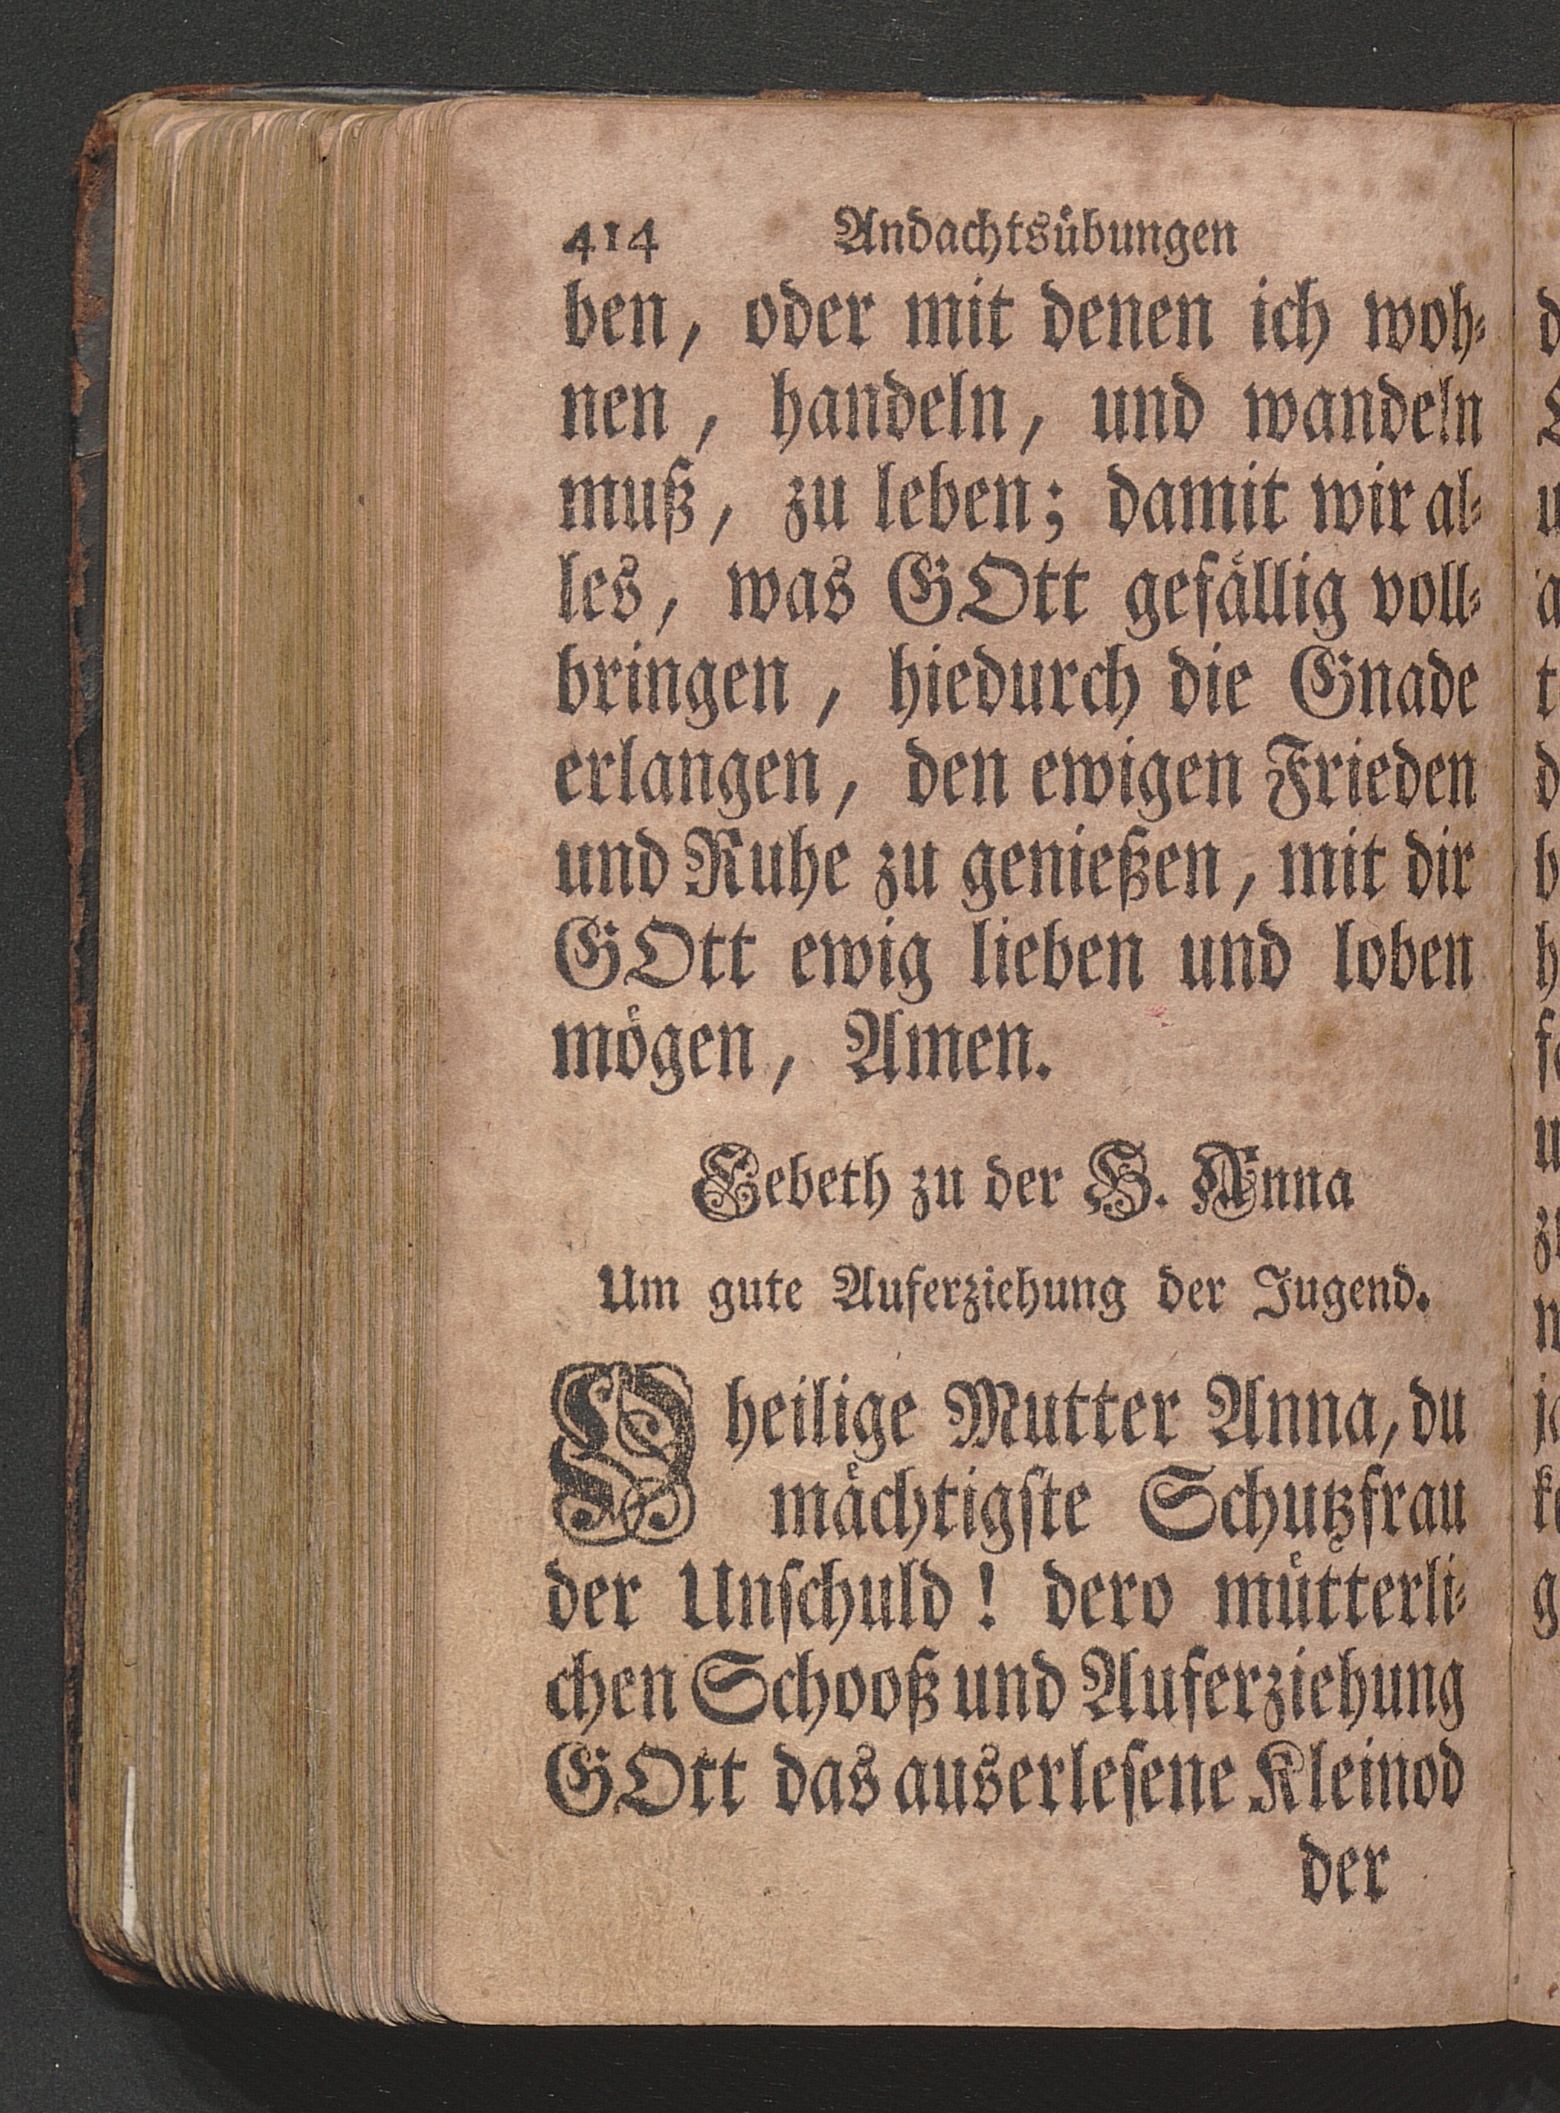 414 Andachtsübungen
ben, oder mit denen ich woh-
nen, handeln, und wandeln
muß, zu leben; damit wir al-
les, was GOtt gefällig voll-
bringen, hiedurch die Gnade
erlangen, den ewigen Frieden
und Ruhe zu genießen, mit dir
GOtt ewig lieben und loben
mögen, Amen.
Gebeth zu der H. Anna
Um gute Auferziehung der Jugend.
O heilige Mutter Anna, du
mächtigste Schutzfrau
der Unschuld! dero mütterli-
chen Schooß und Auferziehung
GOtt das auserlesene Kleinod
der